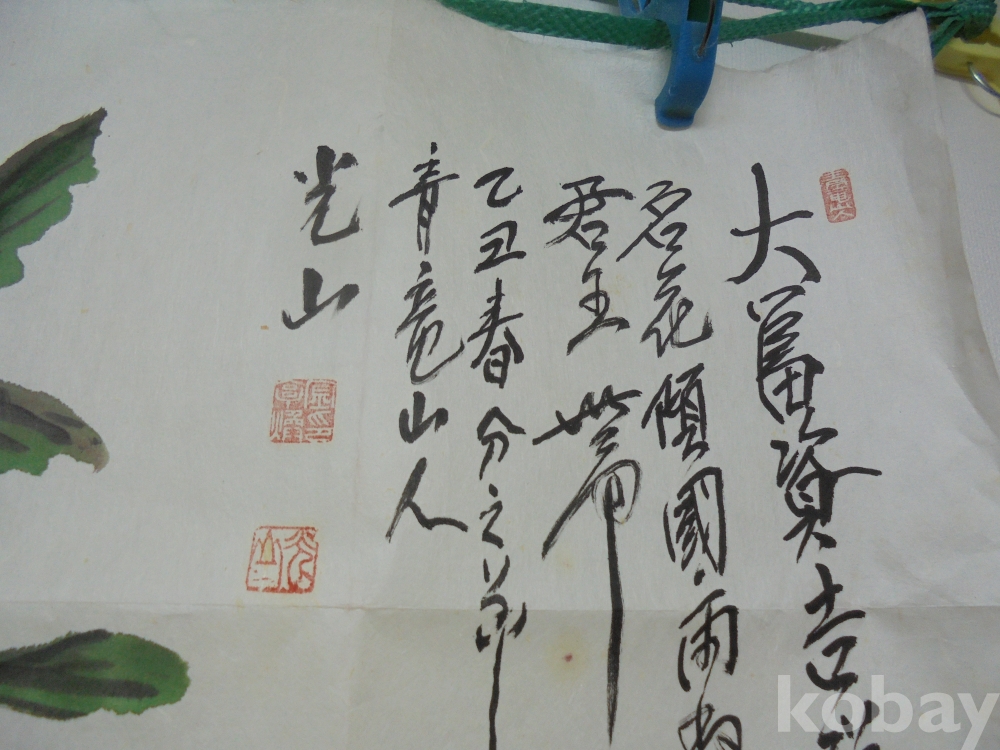 大富貴吉
名花傾國兩
君王帶
乙丑春分之節
青竜山人
光山
kobay